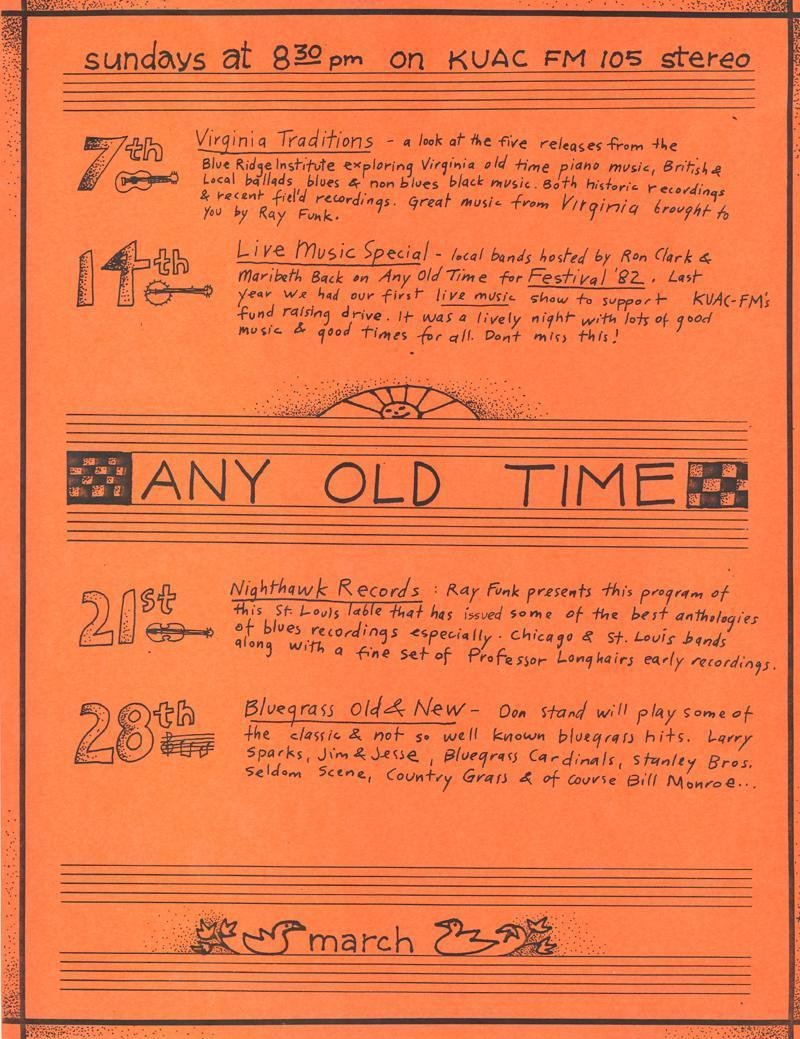 sundays at 8 30 pm on KUAC FM 105 stereo
7th
Virginia Traditions - a look at the five releases from the
Blue Ridge Institute exploring Virginia old time piano music, British &
Local ballads blues & non blues black music. Both historic recordings
& recent field recordings. Great music from Virginia brought to
you by Ray Funk.
14th
Live Music Special - local bands hosted by Ron Clark &
Maribeth Back on Any Old Time for Festival '82. Last
year we had our first live music show to support KUAC-FM's
fund raising drive. It was a lively night with lots of good
music & good times for all. Dont miss this!
ANY OLD TIME
21st
Nighthawk Records : Ray Funk presents this program of
this St. Louis lable that has issued some of the best anthologies
of blues recordings especially. Chicago & St. Louis bands
along with a fine set of Professor Longhairs early recordings.
28th
Bluegrass Old & New - Don Stand will play some of
the classic & not so well known bluegrass hits. Larry
Sparks, Jim & Jesse, Bluegrass Cardinals, Stanley Bros.
Seldom Scene, Country Grass & of course Bill Monroe...
march